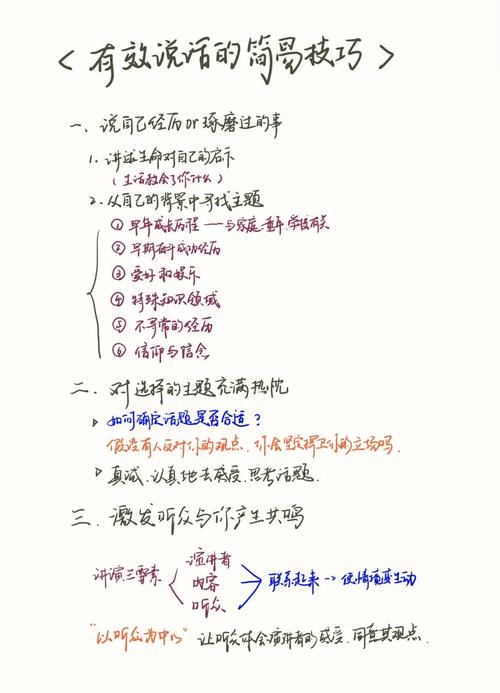 <有效说话的简易技巧>
一、说自己经历or琢磨过的事
1. 讲述生命对自己的启示
(生活教会了你什么)
2. 从自己的背景中寻找主题
① 早年成长历程——与家庭.童年.学校有关
② 早期奋斗成功经历
③ 爱好和娱乐
④ 特殊知识领域
⑤ 不寻常的经历
⑥ 信仰与信念
二、对选择的主题充满热忱
如何确定话题是否合适?
假设有人反对你的观点.你会坚定捍卫你的立场吗.
真诚.认真地去感受.思考话题.
三、激发听众与你产生共鸣
讲演三要素
演讲者
内容
听众
联系起来→使情境更生动
"以听众为中心"让听众体会演讲者的感受.同意其观点.